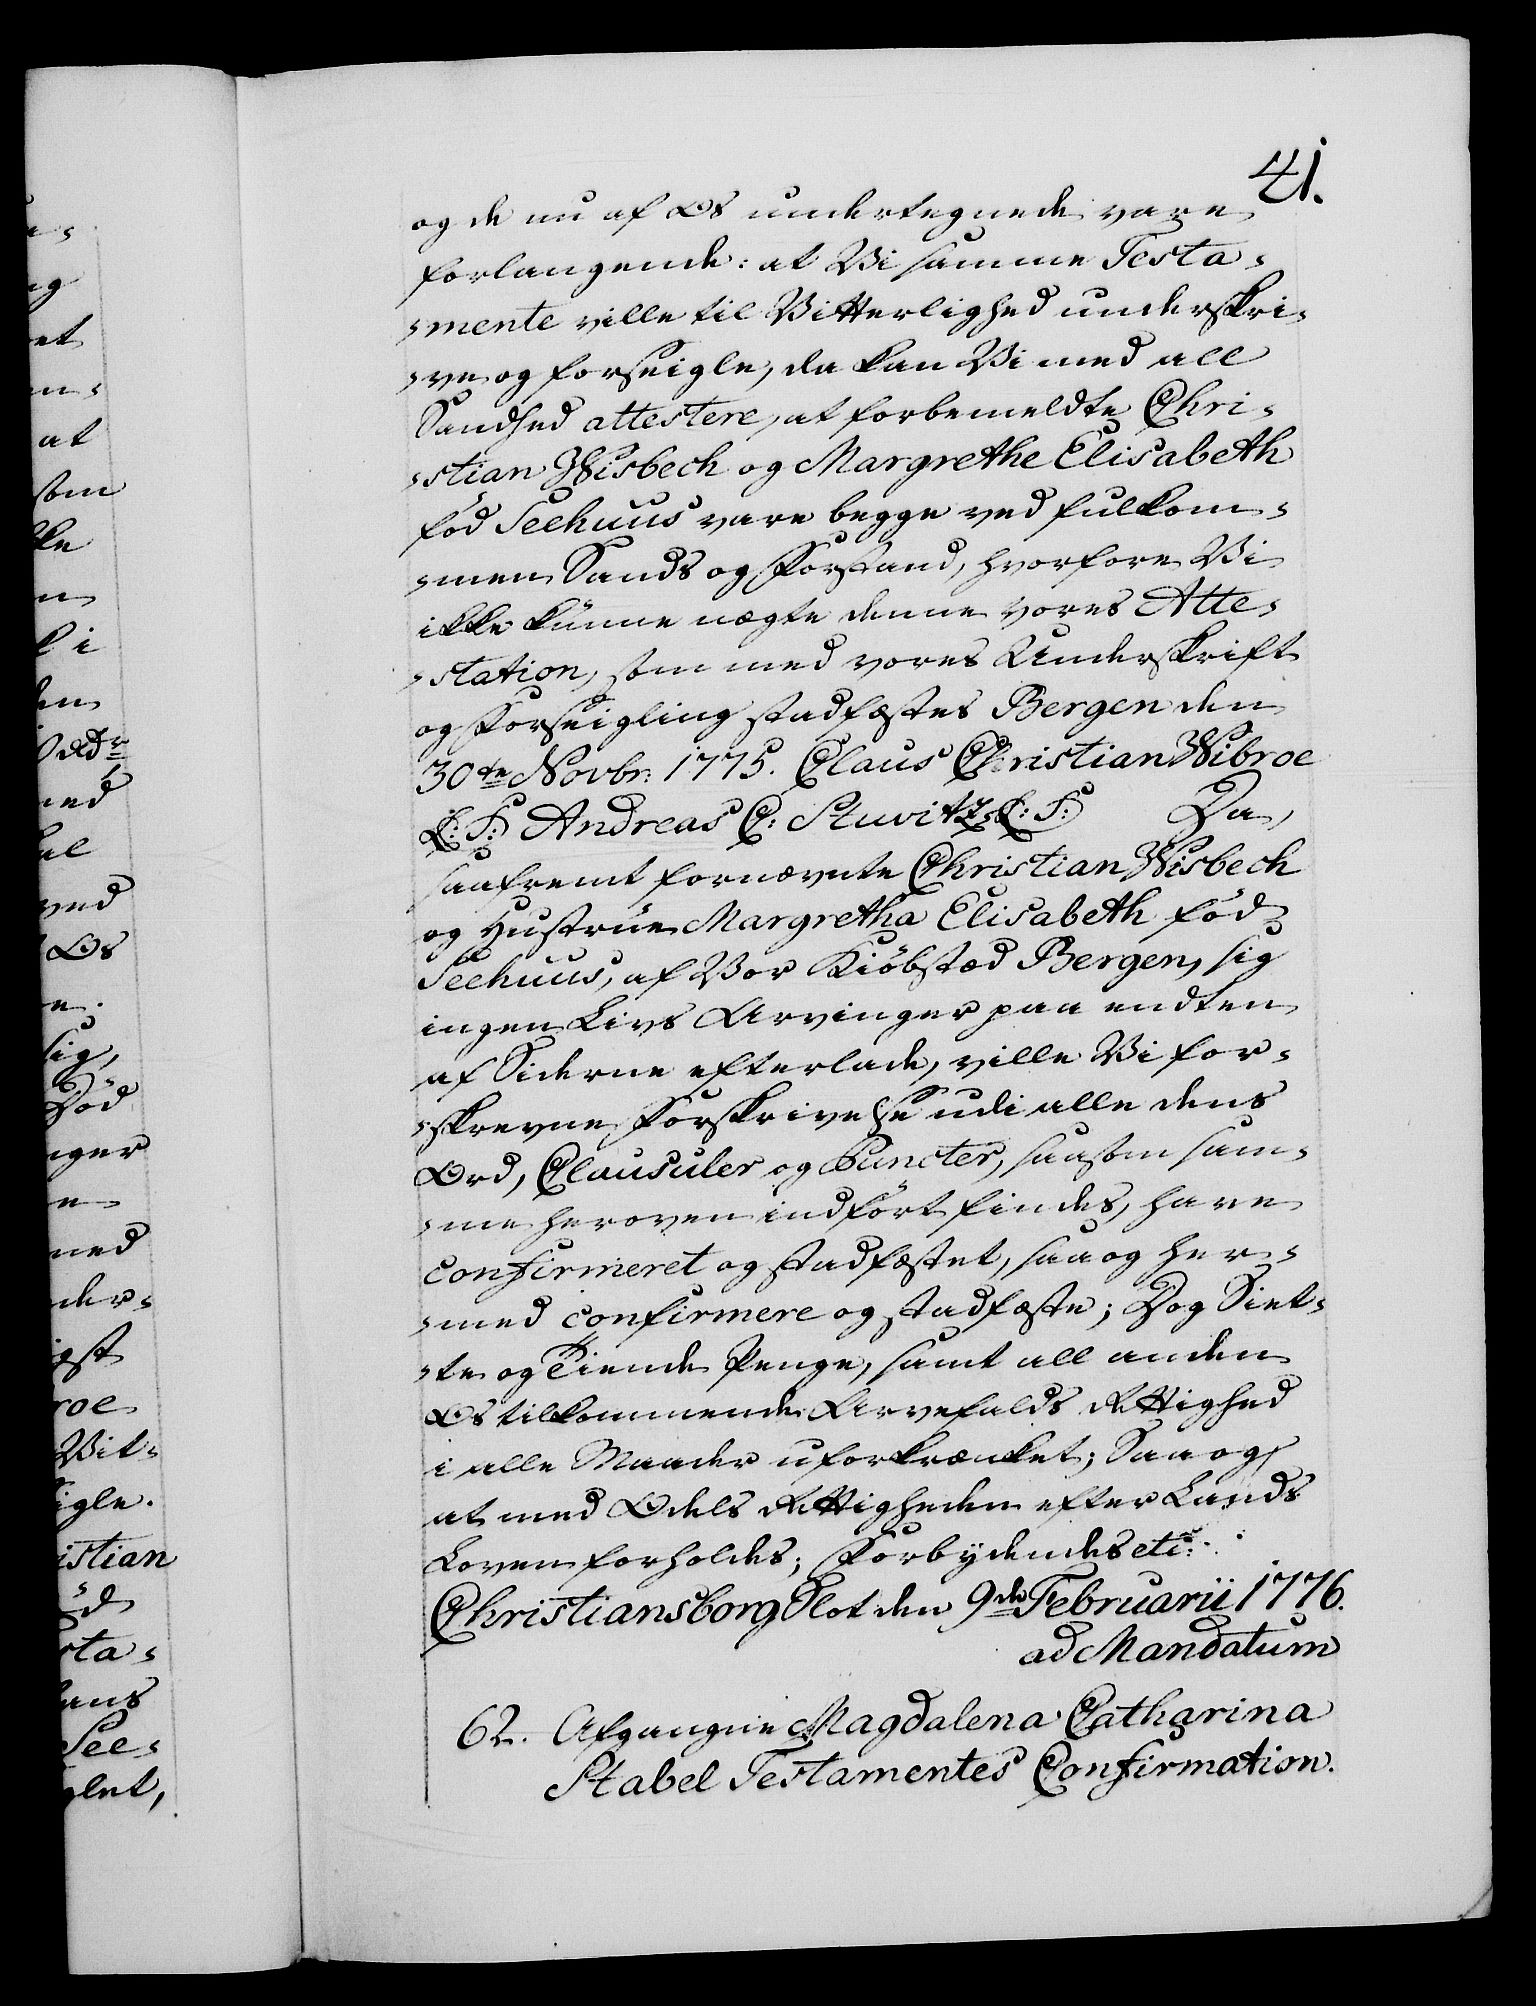 41.
og de nu af Os undertegnede vare
forlangende: at Vi samme Testa-
-mente ville til Vitterlighed underskri-
-ve og forseigle, da kan Vi med all
Sandhed attestere, at forbemeldte Chri-
-stian Wisbech og Margrethe Elisabeth
fød Seehuus vare begge ved fulkom-
-men Sands og Forstand, hvorfore Vi
ikke kunne nægte denne vores Atte-
-station, som med vores Underskrift
og Forseigling stadfæstes Bergen den
30te Novbr: 1775. Claus Christian Wibroe
L: S: Andreas C: Stuvitz L: S: Da,
saafremt fornævnte Christian Wisbech
og Hustrue Margretha Elisabeth fød
Seehuus, af Vor Kiøbstæd Bergen, sig
ingen Livs Arvinger paa endten
af Siderne efterlade, ville Vi for-
-skrevne Forskrivelse udi alle dens
Ord, Clausuler og Puncter, saasom sam-
-me heroven indført findes, have
confirmeret og stadfæstet, saa og her-
-med confirmere og stadfæste; Dog Siet-
-te og Tiende Penge, samt all anden
Os tilkommende Arvefalds Rettighed
i alle Maader uforkrænket; Saa og
at med Odels Rettigheden efter Lands
Loven forholdes; Forbydendes etc:
Christiansborg Slot den 9de Februarii 1776.
ad Mandatum
62. Afgangne Magdalena Catharina
Stabel Testamentes Confirmation.